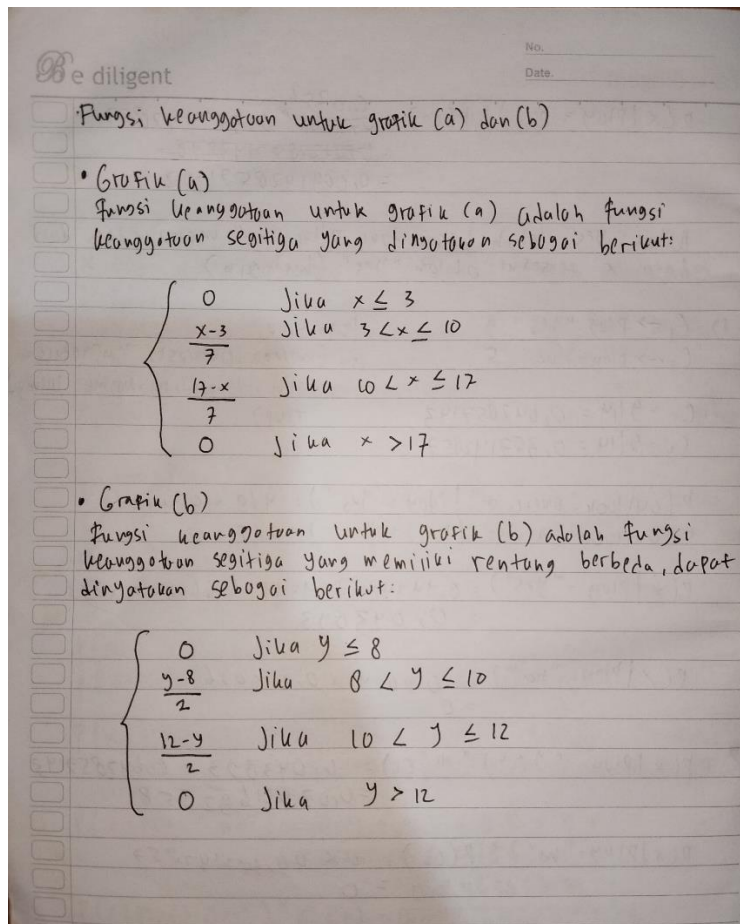 No.
Be diligent
Date.
Fungsi keanggotaan untuk grafik (a) dan (b)
• Grafik (a)
fungsi keanggotaan untuk grafik (a) adalah fungsi
keanggotaan segitiga yang dinyatakan sebagai berikut:
0 Jika x ≤ 3
x-3/7 Jika 3 < x ≤ 10
17-x/7 Jika 10 < x ≤ 17
0 Jika x > 17
• Grafik (b)
fungsi keanggotaan untuk grafik (b) adalah fungsi
keanggotaan segitiga yang memiliki rentang berbeda, dapat
dinyatakan sebagai berikut:
0 Jika y ≤ 8
y-8/2 Jika 8 < y ≤ 10
12-y/2 Jika 10 < y ≤ 12
0 Jika y > 12